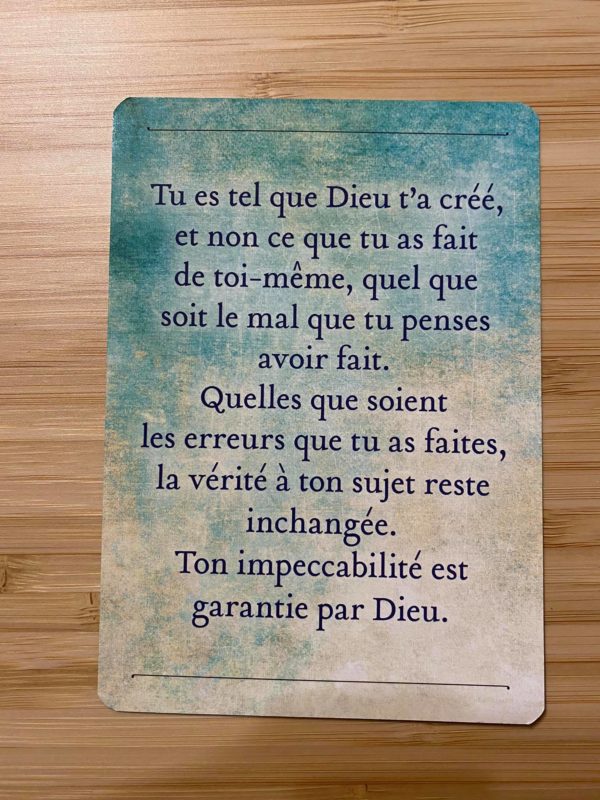 Tu es tel que Dieu t’a créé,
et non ce que tu as fait
de toi-même, quel que
soit le mal que tu penses
avoir fait.
Quelles que soient
les erreurs que tu as faites,
la vérité à ton sujet reste
inchangée.
Ton impeccabilité est
garantie par Dieu.